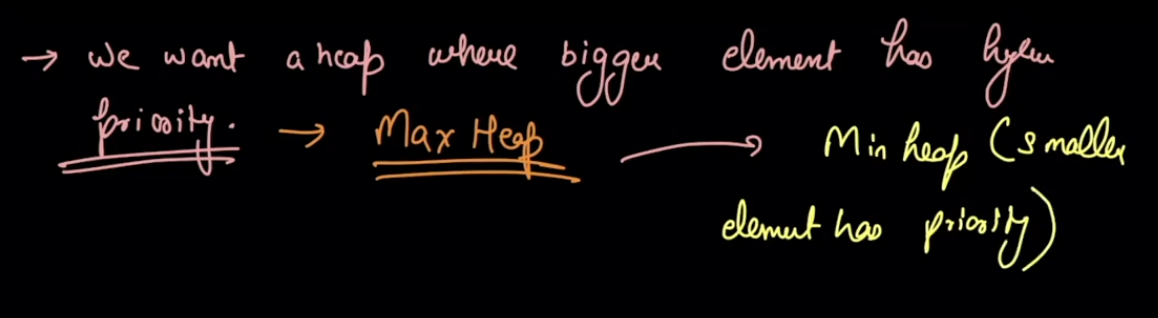 → we want a heap where bigger element has higher
priority. → Max Heap → Min heap (smaller
element has priority)